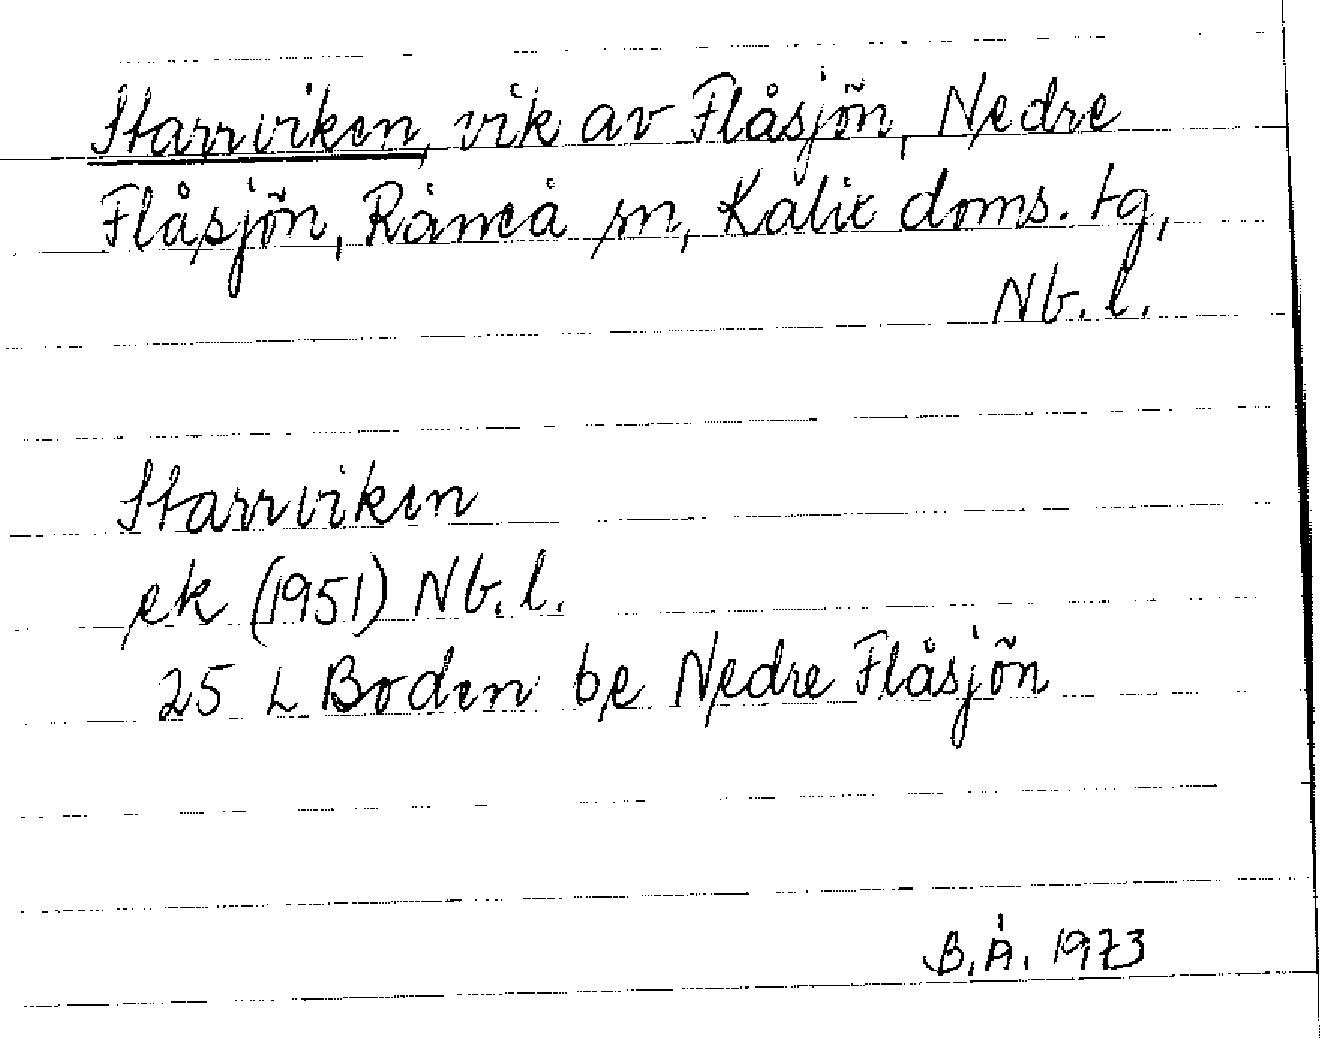 Starrviken, vik av Flåsjön, Nedre
Flåsjön, Råneå sn, Kalix doms. tg,
Nb. l.
Starrviken
ek (1951) Nb. l.
25 L Boden be Nedre Flåsjön
B.Å. 1973